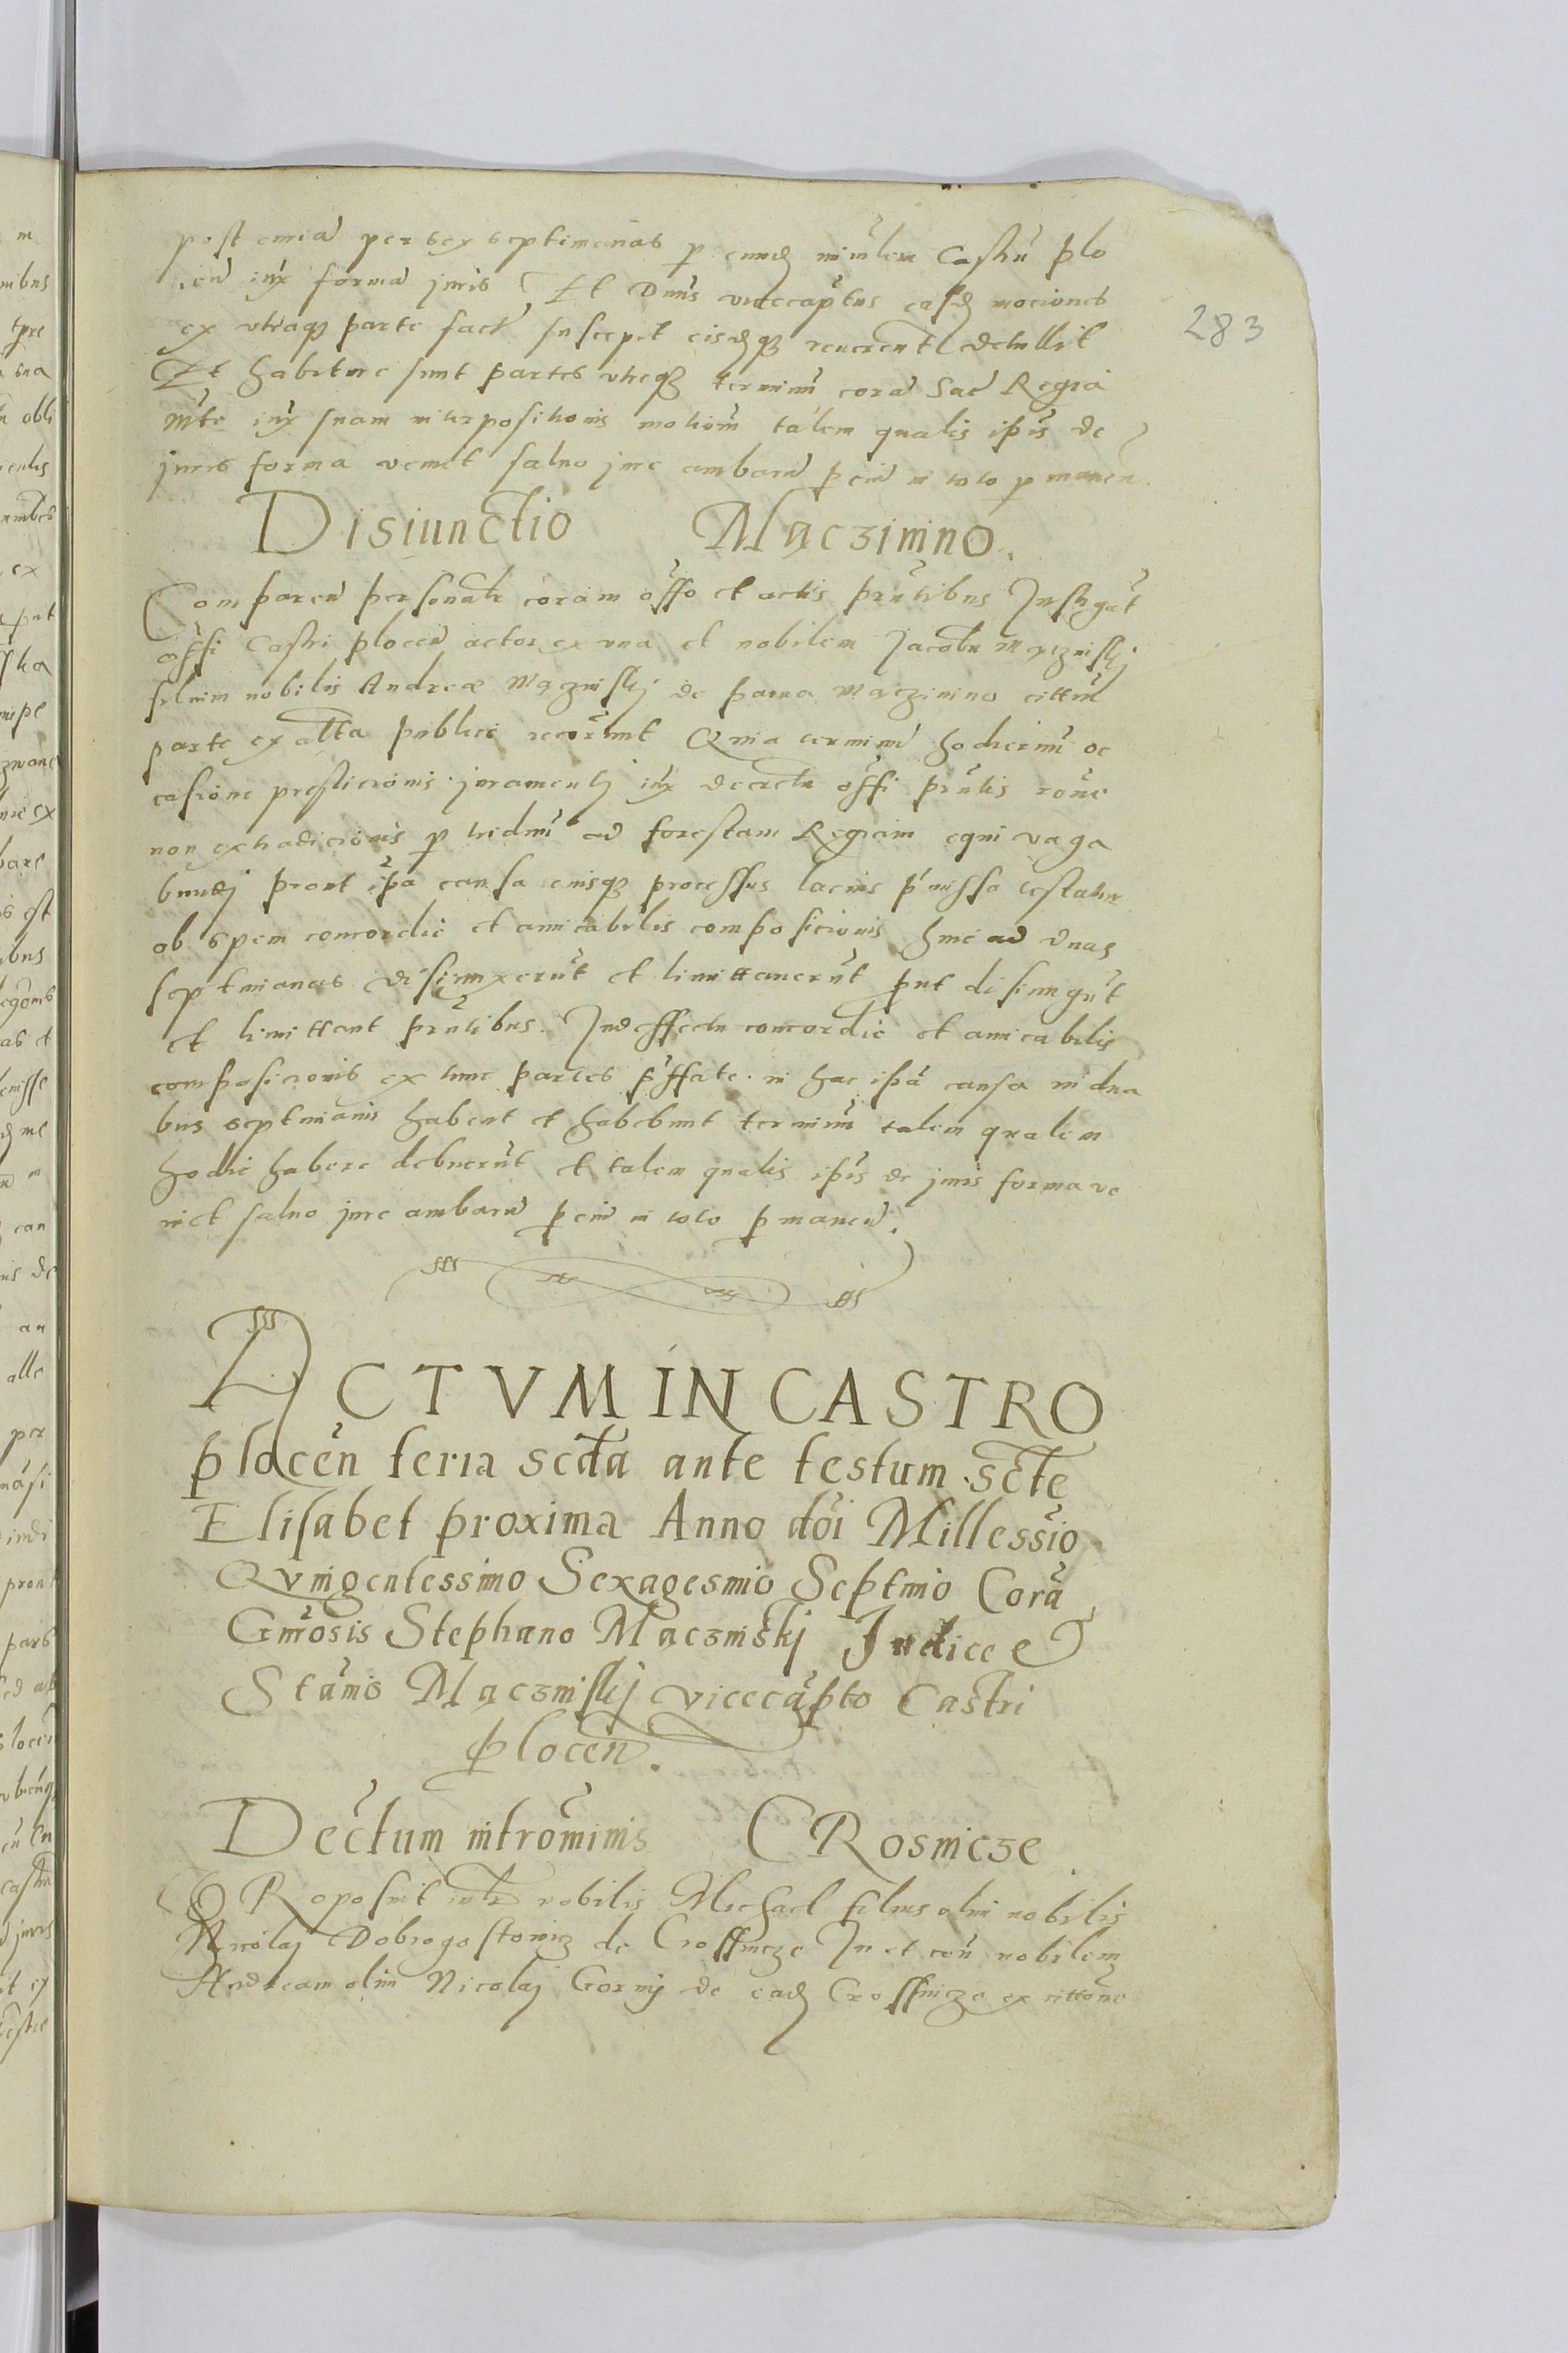 post curia per sex septimanas p eund niulem Castru plo
cen iux forma juris Et Dnus vicecaptus easd mociones
ex vtraq parte fact suscepit eisdq reuerent detullit
Et habiture sunt partes vtreq terminu cora Sac Regia
Mte iux suam interpositionis motiom talem qualis ipis de
juris forma veniet saluo jure ambaru pciu in toto pmanen.
Disiunctio Mączimno.
Comparen personalr coram offo et actis pntibus Instigat
offi Castri plocen actor ex vna et nobilem Jacobu Mączinskj
filium nobilis Andreæ Mączinskj de parua Maczimino cittm
parte ex altra publice recorunt Quia terminu hodiernu oc
casione presticionis juramentj iux decretu offi pntis rone
non extradicionis p triduu ad forestam Regiam equi vaga
bundj prout ipa causa eiusq processus lacius pmissa testatur
ob spem concordie et amicabilis composicionis hinc ad duas
septimanas disiunxerut et limittauerut put disiungut
et limittant pntibus. Indeffectu concordie et amicabilis
composicionis ex tunc partes pffate in hac ipa causa in dua
bus septimanis habent et habebunt terminu talem qualem
hodie habere debuerut et talem qualis ipis de juris forma ve
niet saluo jure ambaru pciu in toto pmanen.
ACTVM IN CASTRO
plocen feria scda ante festum scte
Elisabet proxima Anno doi Millessio
Qvingentessimo Sexagesmio Septmio Cora
Gnrosis Stephano Mączinskj Judice et
Stamo Mączinskj vicecapto Castri
plocen.
Dectum intromimis CRosnicze.
PRoposuit inlr nobilis Michael filius olim nobilis
Nicolaj Dobrogostowicz de Crossnicze In et con nobilem
Andream olim Nicolaj Gornij de ead Crossnicze ex cittone
283